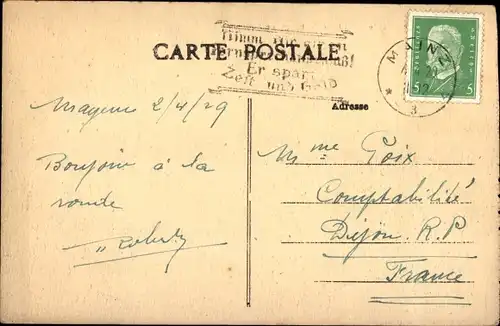 CARTE POSTALE
Er spart
Zeit und Geld
Adresse
MAINZ
3
5 5
Mayence 2/4/29
Bonjour à la
ronde
Robert
Mme Goix
Comptabilité
Dijon R.P
France